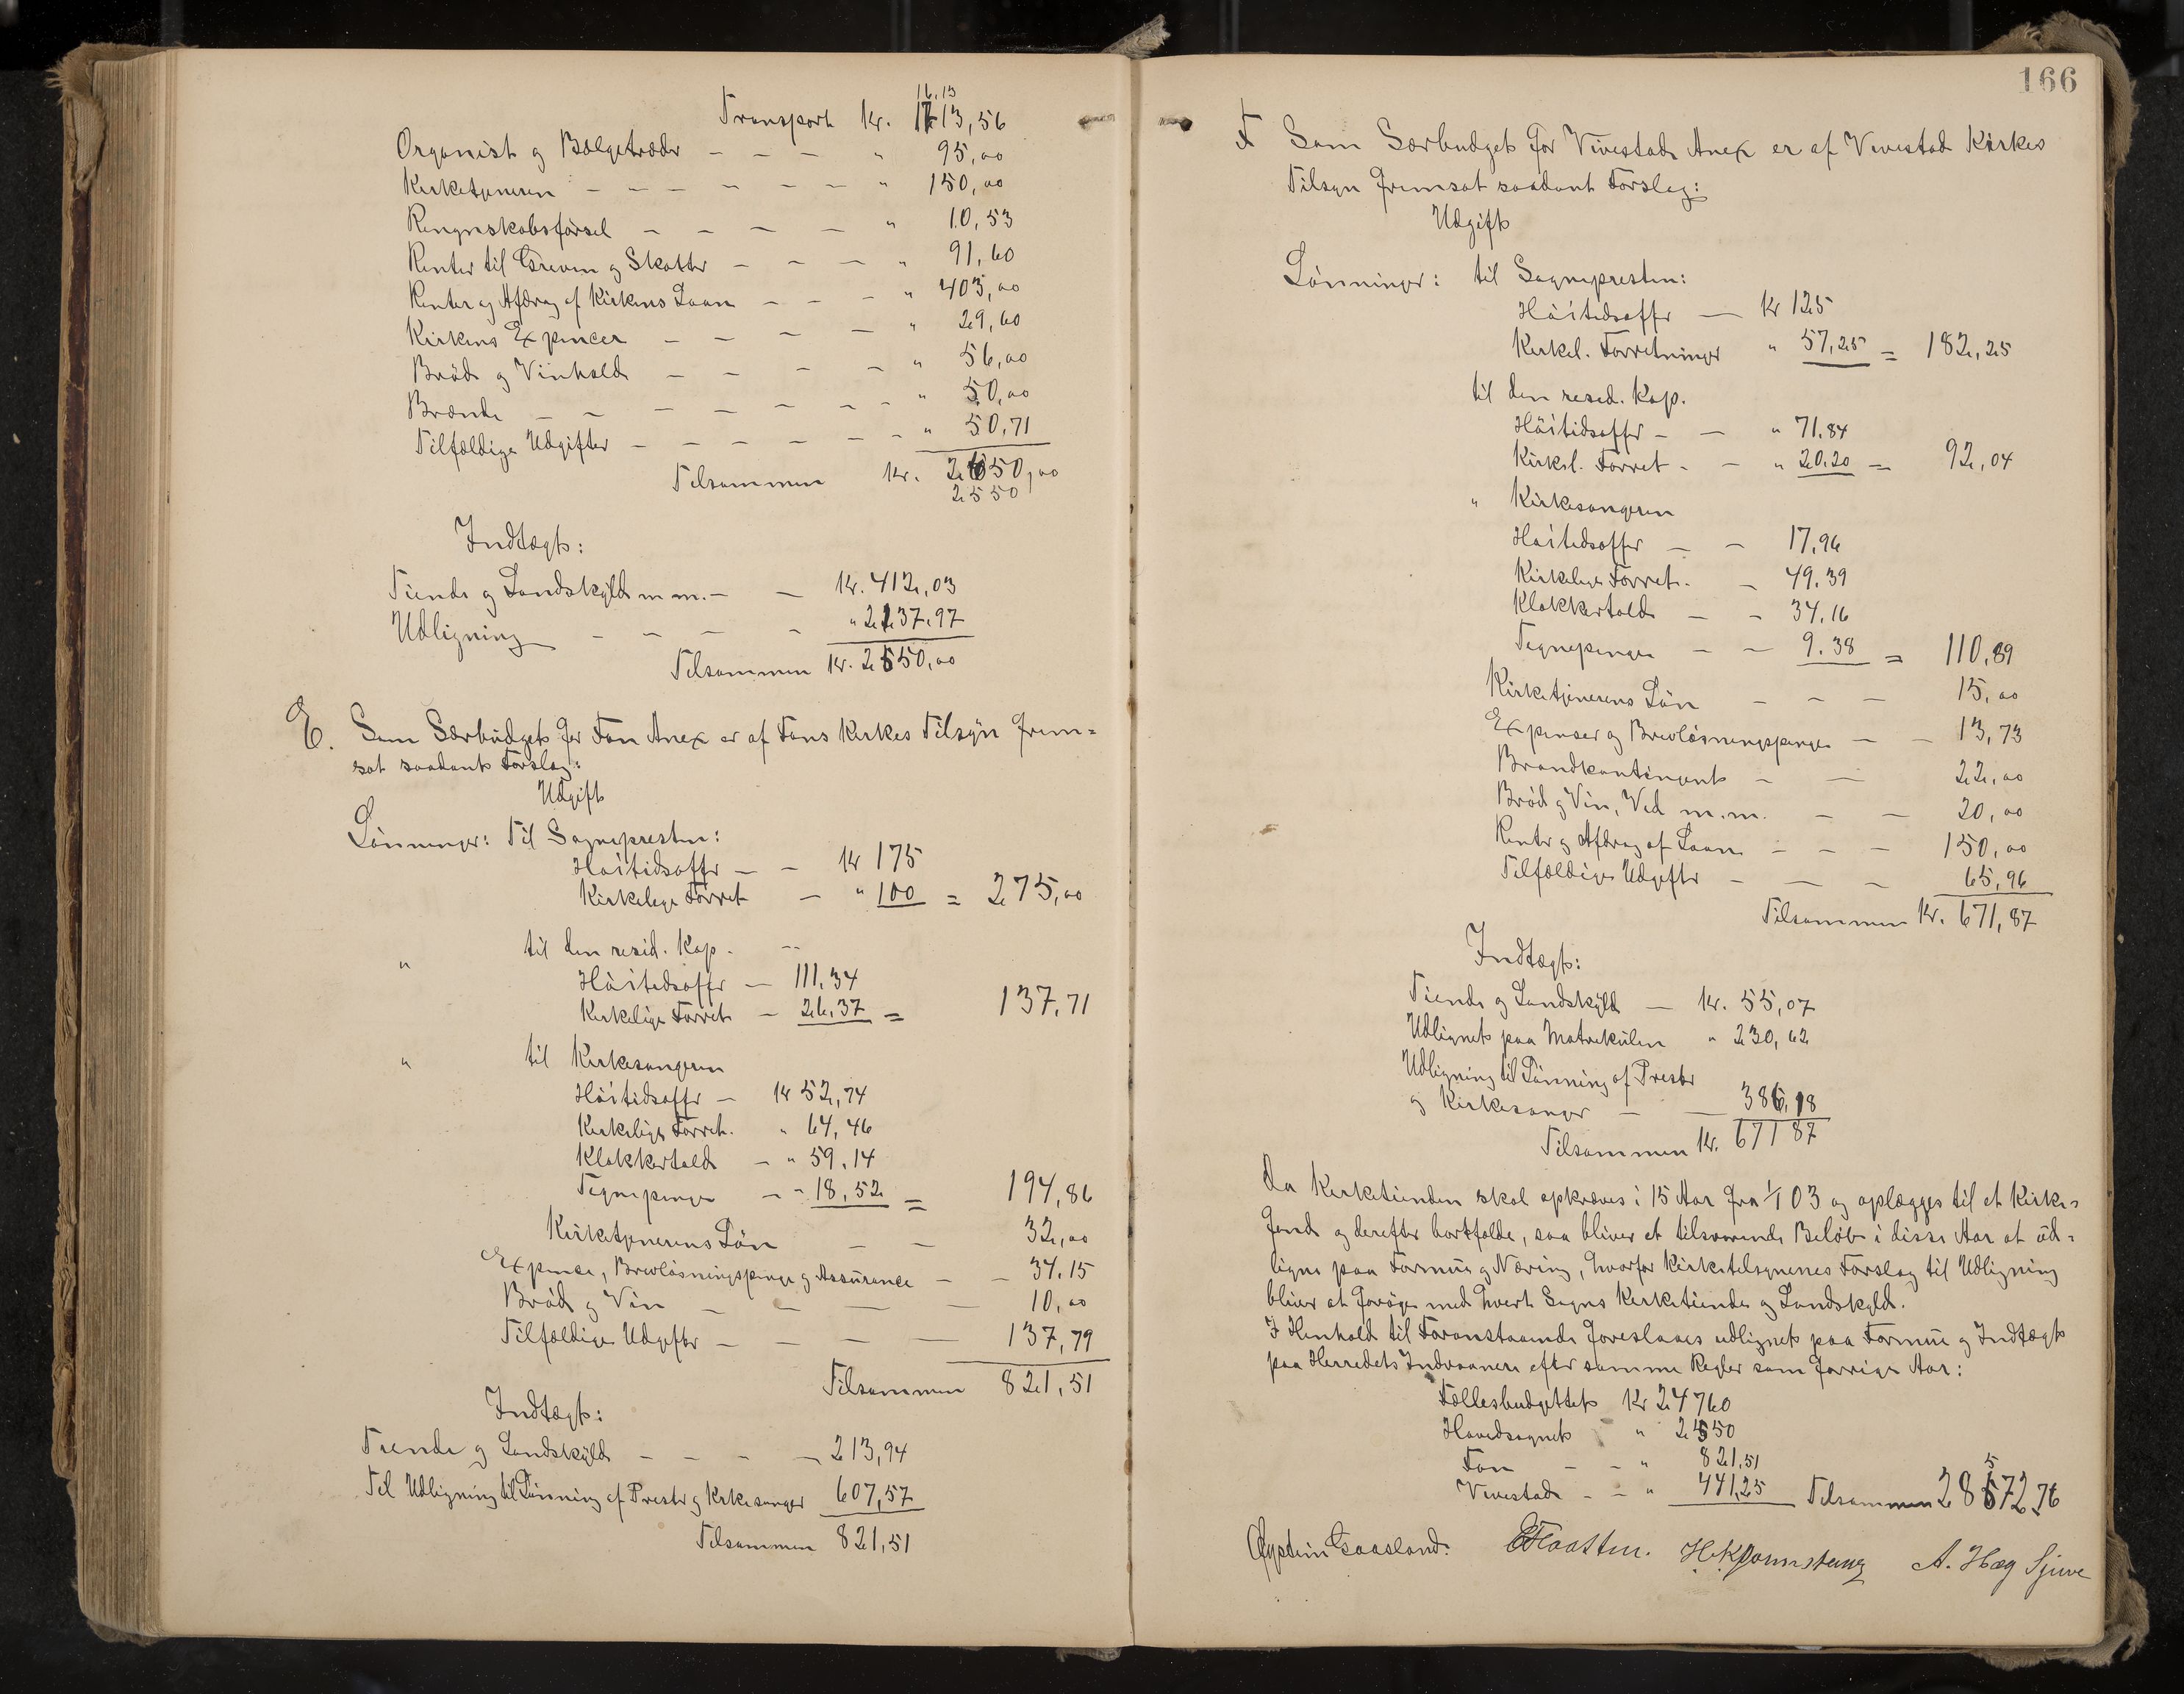 16,13
Transport Kr. 1713,56
Organist og Bælgetræder — — — " 95,00
Kirketjeneren — — — — — — — " 150,00
Rengnskabsførsel — — — — " 10,53
Renter til Greven og Skatter — — — " 91,60
Renter og Afdrag af Kirkens Laan — — — " 403,00
Kirkens Expencer — — — — " 29,60
Brød og Vinhold — — — — " 56,00
Brænde — — — — — — — " 50,00
Tilfældige Udgifter — — — — — — " 50,71
Tilsammen Kr. 2650,00
2550
Indtægt:
Tiende og Landskyld m m. — — Kr. 412,03
Udligning — — — — " 2137,97
Tilsammen Kr. 2550,00
E. Som Særbudget for Fon Anex er af Fons Kirkes Tilsyn frem=
sat saadant Forslag:
Udgift
Lønninger: Til Sognepresten:
Høitidsoffer — — Kr 175
Kirkelige Forret — " 100 = 275,00
" til den resid. Kap. --
Høitidsoffer — 111,34
Kirkelige Forret — 26,37 = 137,71
" til Kirkesangeren
Høitidsoffer — Kr 52,74
Kirkelige Forret. " 64,46
Klokkertold — " 59,14
Tegnepenge — " 18,52 = 194,86
Kirketjenerens Løn — — 32,00
Expence, Brevløsningspenge og Assurance — — 34,15
Brød og Vin — — — — 10,00
Tilfældige Udgifter — — — — 137,79
Tilsammen 821,51
Indtægt:
Tiende og Landskyld — — — — 213,94
Til Udligning til Lønning af Prester og Kirkesanger 607,57
Tilsammen 821,51
166
F Som Særbudget for Vivestad Anex er af Vivestad Kirkes
Tilsyn fremsat saadant Forslag:
Udgift
Lønninger: til Sognepresten:
Høitidsoffer — Kr 125
Kirkel. Forretninger " 57,25 = 182,25
til den resid. Kap.
Høitidsoffer — — " 71,84
Kirkel. Forret — — " 20,20 = 92,04
" Kirkesangeren
Høitidsoffer — — 17,96
Kirkelige Forret. — 49,39
Klokkertold — — 34,16
Tegnepenge — — 9,38 = 110,89
Kirketjenerens Løn — — — 15,00
Expenser og Brevløsningspenge — — 13,73
Brandkontingent — — 22,00
Brød og Vin, Ved m.m. — — 20,00
Renter og Afdrag af Laan — — — 150,00
Tilfældige Udgifter — — — 65,96
Tilsammen Kr. 671,87
Indtægt:
Tiende og Landskyld — Kr. 55,07
Udlignet paa Matrikulen " 230,62
Udligning til Lønning af Prester
og Kirkesanger — — 386,18
Tilsammen Kr. 671 87
Da Kirketienden skal opkræves i 15 Aar fra 1/1 03 og oplægges til et Kirke=
fond og derefter bortfalde, saa bliver et tilsvarende Beløb i disse Aar at ud=
ligne paa Formue og Næring, hvorfor Kirketilsynenes Forslag til Udligning
bliver at forøge med hvert Sogns Kirketiende og Landskyld.
I Henhold til Foranstaaende foreslaaes udlignet paa Formue og Indtægt
paa Herredets Indvaanere efter samme Regler som forrige Aar:
Fællesbudgettet Kr 24760
Hovedsognet " 2550
Fon — — " 821,51
5
Vivestad — — " 441,25 Tilsammen 28672,76
Øystein Gaasland. H. K. A. Hæg Sjuve